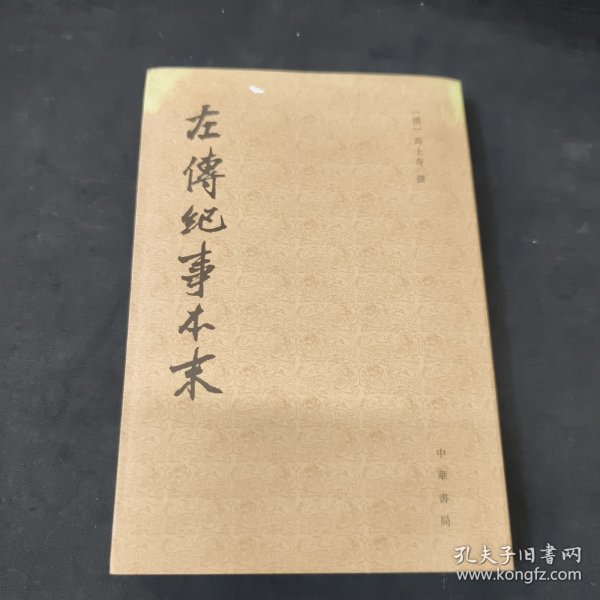 左傳紀事本末
〔清〕高士奇 撰
中華書局
孔夫子旧書网
www.kongfz.com